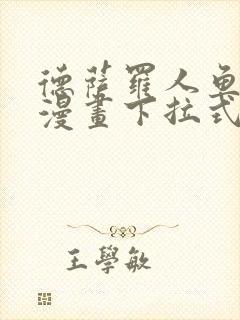 德薩羅人魚
漫畫下拉式
王學敏